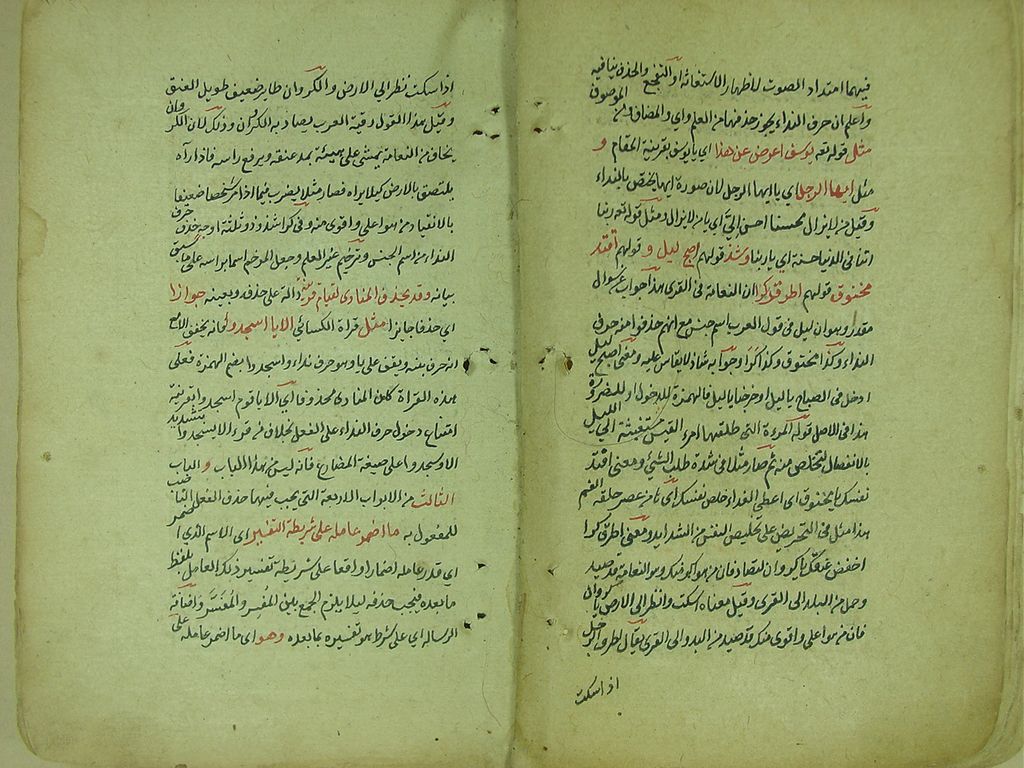 فيهما امتداد الصوت لاظهار الاستغاثة او التفجع والحذف ينافيه
واعلم ان حرف النداء يجوز حذفها من العلم واي والمضاف ومن الموصول
مثل قوله تعه يوسف اعرض عن هذا اي يا يوسف بقرينة المقام و
مثل ايها الرجل اي يا ايها الرجل لان صورة ايها يختص بالنداء
وقيل من لا يزال محسنا احسن الي اي يا من لا يزال ومثل قوله تعه ربنا
اتنا في الدنيا حسنة اي يا ربنا وشذ قولهم اصبح ليل و قولهم افتد
مخنوق قولهم اطرق كرا ان النعامة في القرى هذا جواب عن سؤال
مقدر وهو ان ليل في قول العرب اسم جنس مع انهم حذفوا منه حرف
النداء وكذا مخنوق وكذا كرا وجوابه شاذ لا يقاس عليه ومعنى اصبح ليل
ادخل في الصباح يا ليل او صر صبحا يا ليل فالهمزة للدخول او للصيرورة
هذا في الاصل قوله المرءة التي طلقها امرء القيس مستغيثة الى الليل
بالانفصال لتخلص منه ثم صار مثلا في شدة طلب الشيء ومعنى افتد
نفسك يا مخنوق اي اعطي الفداء خلص نفسك اي يا من عصر حلقه الغم
هذا مثل في التحريض على تخليص النفس من الشدايد ومعنى اطرق كرا
اخفض عنقك يا كروان لتصاد فان من هو اكبر منك وهو النعامة قد صيد
وحمل من البلد الى القرى وقيل معناه اسكت وانظر الى الارض يا كروان
فان من هو اعلى واقوى منك قد صيد من البدو الى القرى يقال لطرق الرجل
اذا سكت
اذا سكت نظر الى الارض والكروان طاير ضعيف طويل العنق
وقيل هذا القول رقية العرب يصاد به الكروان وذلك لان الكروان
يخاف من النعامة يمشي على هيئة يمد عنقه ويرفع راسه فاذا رآه
يلتصق بالارض كيلا يراه فصار مثلا يضرب فيما اذا امر شخصا ضعيفا
بالانقياد من هو اعلى واقوى منه وفي كرا شذوذ ثلثة اوجه حذف حرف
النداء من اسم الجنس وترخيم غير العلم وجعل المرخم اسما براسه على ما سبق
بيانه وقد يحذف المنادى لقيام قرينة دالة على حذفه وبعينه جوازا
اي حذفا جايزا مثل قراة الكسائي الا يا اسجدوا فانه يخفف الا مع
انه حرف تنبيه ويقف على يا وهو حرف نداء واسجدوا بضم الهمزة فعلى
هذه القراة كان المنادى محذوفا اي الا يا قوم اسجدوا بقرينة
امتناع دخول حرف النداء على الفعل بخلاف من قرء الا يسجدوا بتشديد
الا وسجدوا على صيغة المضارع فانه ليس من هذا الباب و الباب
الثالث من الابواب الاربعة التي يجب فيها حذف الفعل الناصب
للمفعول به ما اضمر عامله على شريطة التفسير اي الاسم الذي اضمر
اي قدر عامله اضمارا واقعا على شريطة تفسير ذلك العامل بلفظ
ما بعده فيجب حذفه ليلا يلزم الجمع بين المفسر والمفسر واضافة
الرسالة اي على شرط هو تفسيره بما بعده وهو اي ما اضمر عامله على